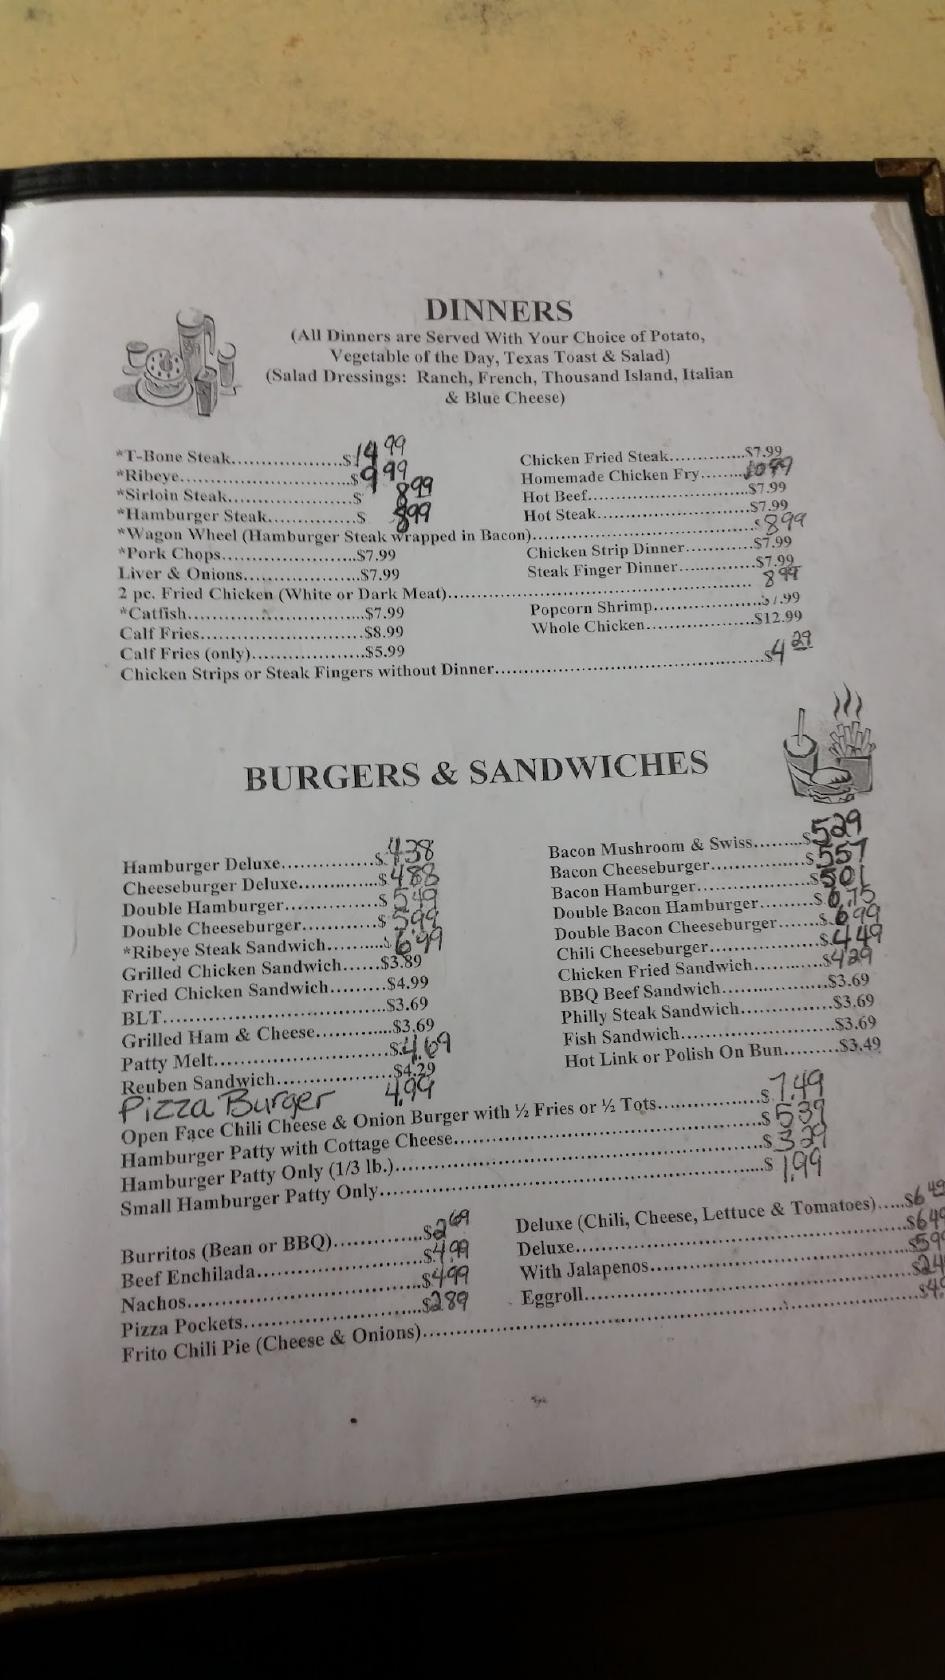 DINNERS
(All Dinners are Served With Your Choice of Potato,
Vegetable of the Day, Texas Toast & Salad)
(Salad Dressings: Ranch, French, Thousand Island, Italian
& Blue Cheese)
*T-Bone Steak....................$14.99
*Ribeye....................$9.99
*Sirloin Steak....................$ 8.99
*Hamburger Steak...............$ 8.99
Chicken Fried Steak.............$7.99
Homemade Chicken Fry........
Hot Beef............................$7.99
Hot Steak...........................$7.99
*Wagon Wheel (Hamburger Steak wrapped in Bacon)....................$8.99
*Pork Chops.......................$7.99
Liver & Onions....................$7.99
Chicken Strip Dinner............$7.99
Steak Finger Dinner.............$7.99
2 pc. Fried Chicken (White or Dark Meat)....................8.99
*Catfish...............................$7.99
Calf Fries............................$8.99
Calf Fries (only)...................$5.99
Popcorn Shrimp...................$7.99
Whole Chicken...................$12.99
Chicken Strips or Steak Fingers without Dinner....................$4.29
BURGERS & SANDWICHES
Hamburger Deluxe...............$4.38
Cheeseburger Deluxe.............$4.88
Double Hamburger................$5.49
Double Cheeseburger............$5.99
*Ribeye Steak Sandwich.........$6.99
Grilled Chicken Sandwich......$3.89
Fried Chicken Sandwich.........$4.99
BLT....................................$3.69
Grilled Ham & Cheese............$3.69
Patty Melt............................$4.69
Reuben Sandwich..................$4.29
Pizza Burger 4.99
Bacon Mushroom & Swiss.........$5.29
Bacon Cheeseburger...............$5.57
Bacon Hamburger..................$5.01
Double Bacon Hamburger.........$6.75
Double Bacon Cheeseburger.......$6.99
Chili Cheeseburger..................$4.49
Chicken Fried Sandwich............$4.29
BBQ Beef Sandwich..................$3.69
Philly Steak Sandwich...............$3.69
Fish Sandwich.........................$3.69
Hot Link or Polish On Bun.........$3.49
Open Face Chili Cheese & Onion Burger with ½ Fries or ½ Tots....................$7.49
Hamburger Patty with Cottage Cheese....................$5.39
Hamburger Patty Only (1/3 lb.)....................$3.29
Small Hamburger Patty Only....................$1.99
Burritos (Bean or BBQ)..............$2.69
Beef Enchilada.........................$4.99
Nachos....................................$4.99
Pizza Pockets...........................$2.89
Deluxe (Chili, Cheese, Lettuce & Tomatoes).....$6.49
Deluxe....................$6.49
With Jalapenos....................$5.99
Eggroll....................
Frito Chili Pie (Cheese & Onions)....................